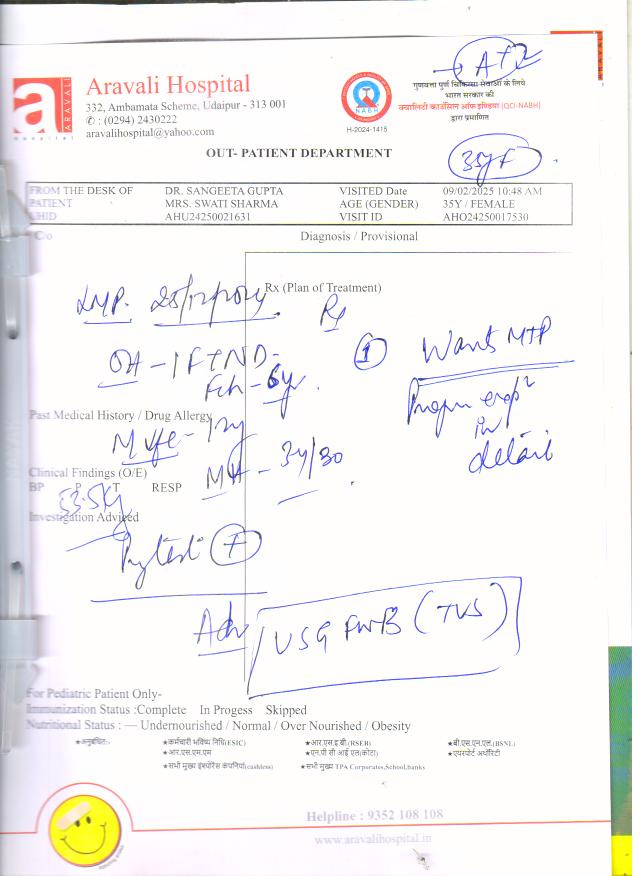 Aravali Hospital
332, Ambamata Scheme, Udaipur - 313 001
✆ : (0294) 2430222
aravalihospital@yahoo.com
a
ARAVALI
Hospital
NABH
H-2024-1415
गुणवत्ता पूर्ण चिकित्सा सेवाओं के लिये
भारत सरकार की
क्वालिटी काउंसिल ऑफ इण्डिया (QCI-NABH)
द्वारा प्रमाणित
OUT- PATIENT DEPARTMENT
35y F
FROM THE DESK OF DR. SANGEETA GUPTA VISITED Date 09/02/2025 10:48 AM
PATIENT MRS. SWATI SHARMA AGE (GENDER) 35Y / FEMALE
UHID AHU24250021631 VISIT ID AHO24250017530
C/o Diagnosis / Provisional
Rx (Plan of Treatment)
LMP. 25/12/2024 Rx
① Wants MTP
OH - 1 FTND -
Fch - 6y
in
detail
Past Medical History / Drug Allergy
M - 12y
MH - 3y/30
Clinical Findings (O/E)
BP P T RESP
53.5kg
Investigation Adviced
Adv USG FWB (TVS)
For Pediatric Patient Only-
Immunization Status :Complete In Progess Skipped
Nutritional Status : — Undernourished / Normal / Over Nourished / Obesity
★अनुबंधित:- ★कर्मचारी भविष्य निधि(ESIC) ★आर.एस.इ.बी.(RSEB) ★बी.एस.एन.एल.(BSNL)
★आर.एस.एम.एम ★एन.पी सी आई एल(कोटा) ★एयरपोर्ट अथॉरिटी
★सभी मुख्य इंश्योरेंस कंपनियां(cashless) ★सभी मुख्य TPA Corporates,School,banks
Helpline : 9352 108 108
www.aravalihospital.in